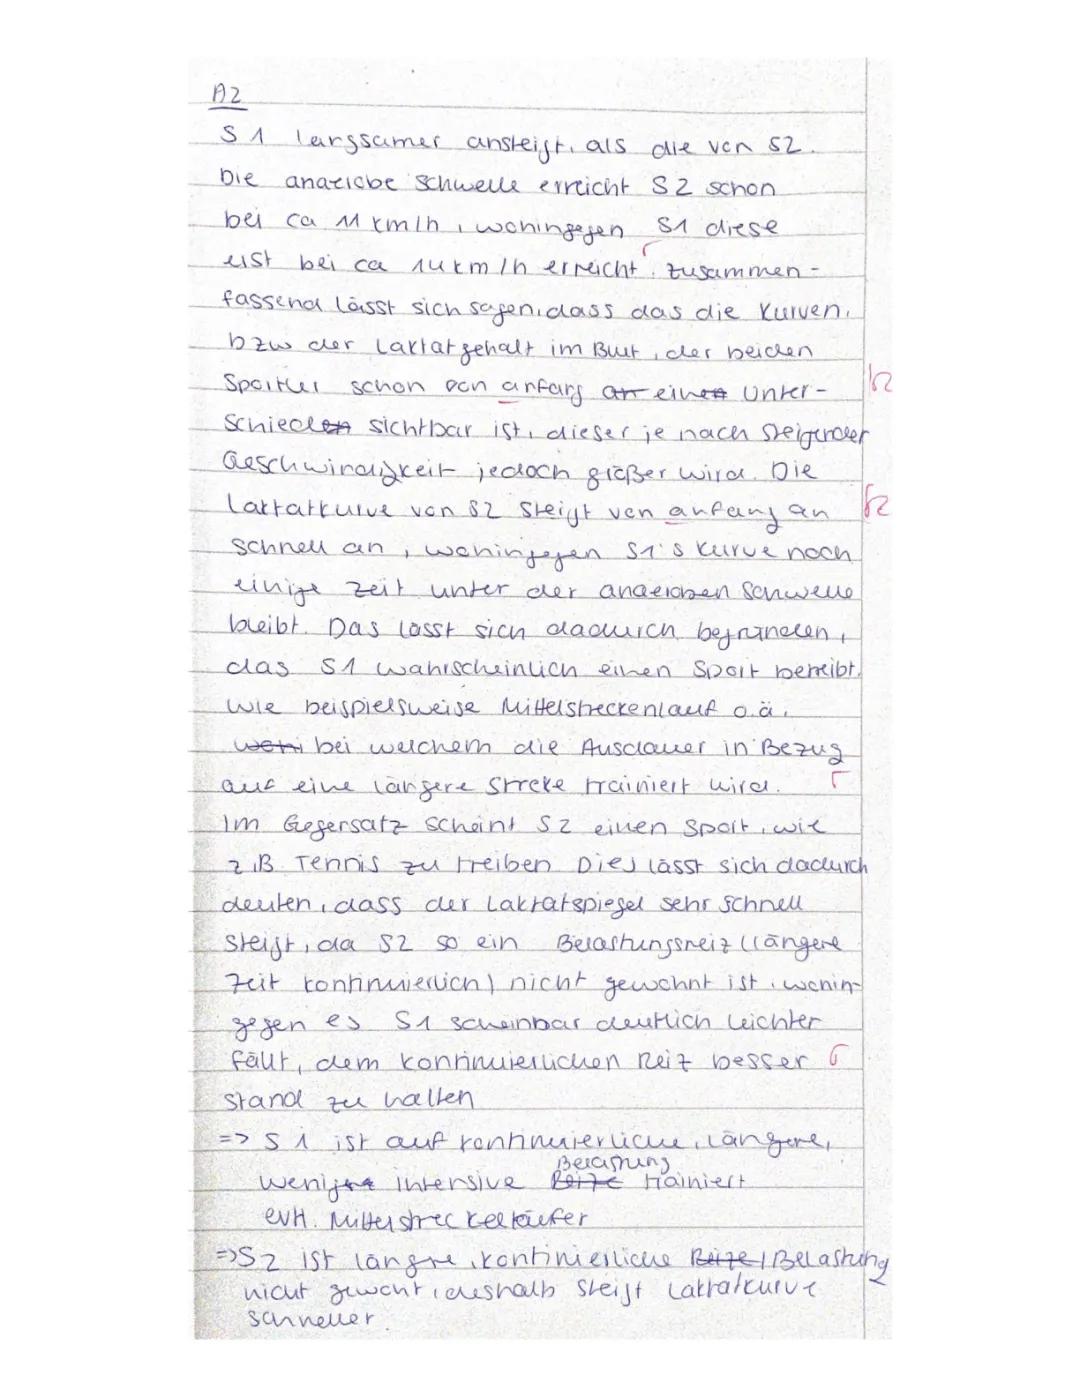 A2
S1 langsamer ansteigt, als die von S2.
Die anaerobe Schwelle erreicht S2 schon
bei ca 11 km/h, wohingegen S1 diese
erst bei ca 14 km/h erreicht. Zusammen-
fassend lässt sich sagen, dass das die Kurven,
bzw der Laktatgehalt im Blut, der beiden
Sportler schon von anfang an einen Unter-
schieden sichtbar ist, dieser je nach steigender
Geschwindigkeit jedoch größer wird. Die
Laktatkurve von S2 steigt von anfang an
schnell an, wohingegen S1's Kurve noch
einige Zeit unter der anaeroben Schwelle
bleibt. Das lässt sich dadurch begründen,
das S1 wahrscheinlich einen Sport betreibt,
wie beispielsweise Mittelstreckenlauf o.ä.
bei welchem die Ausdauer in Bezug
auf eine längere Strecke trainiert wird.
Im Gegensatz scheint S2 einen Sport, wie
z.B. Tennis zu treiben. Dies lässt sich dadurch
deuten, dass der Laktatspiegel sehr schnell
steigt, da S2 so ein Belastungsreiz (längere
Zeit kontinuierlich) nicht gewohnt ist, wohin-
gegen es S1 scheinbar deutlich leichter
fällt, dem kontinuierlichen Reiz besser
stand zu halten
=> S1 ist auf kontinuierliche, längere,
Belastung
weniger intensive Reize trainiert
evtl. Mittelstreckenläufer
=> S2 ist längre, kontinierliche Reize / Belastung
nicht gewohnt, deshalb steigt Laktatkurve
schneller.